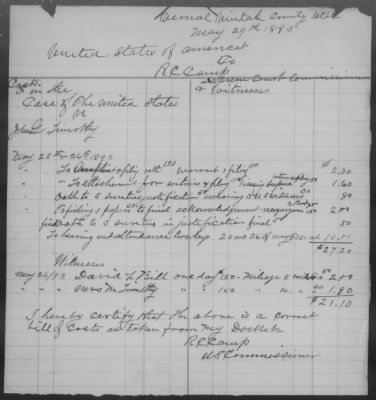 Vernal Uintah County Utah
May 29th 1893
United States of America
To
R C Camp
Supreme Court Commissioner
Cost in the & Witnesses
Case of The United States
vs
John Timothy
May 25th & 26th 1893
To Complaint & filing oath Warrant & filing $ 2.00
" To attachment for witness & filing 1.60
Oath to 5 sureties justification 80
filing papers to final acknowledgement recognizance 2.00
oath to 5 sureties in justification final 50
To hearing and attendance two days 25 and 26
$27.20
Witnesses
May 26/93 David L Bill one day 150 - Mileage 5 miles 50 2.00
" " Mrs M Timothy " 150 " 4 " 1.90
$21.10
I hereby certify that the above is a correct
bill of Costs as taken from my Docket
R C Camp
US Commissioner